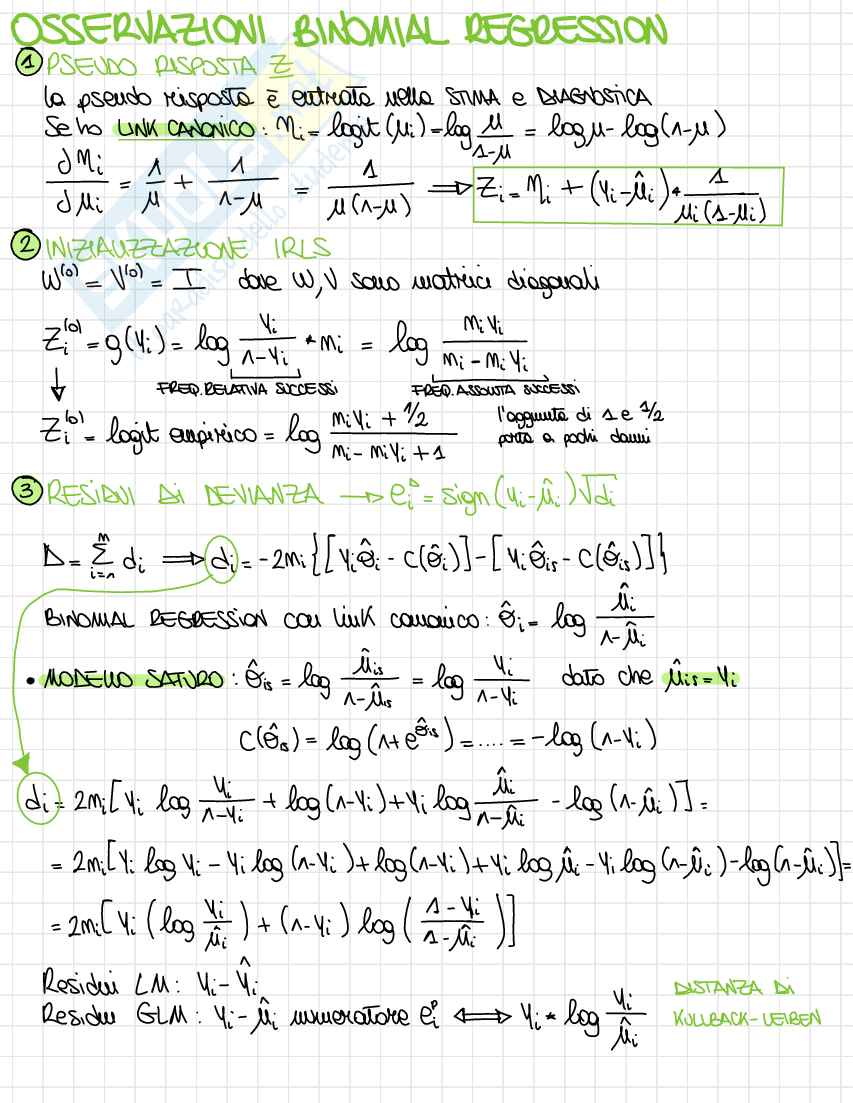 OSSERVAZIONI BINOMIAL REGRESSION
1 PSEUDO RISPOSTA Z
la pseudo risposta è entrata nella STIMA e DIAGNOSTICA
Se ho LINK CANONICO: ηi = logit(μi) = log μ/(1-μ) = log μ - log(1-μ)
∂ηi/∂μi = 1/μ + 1/(1-μ) = 1/(μ(1-μ)) ⟹ Zi = ηi + (yi - μ̂i) * 1/(μi(1-μi))
2 INIZIALIZZAZIONE IRLS
W⁽⁰⁾ = V⁽⁰⁾ = I dove W,V sono matrici diagonali
Zi⁽⁰⁾ = g(yi) = log yi/(1-yi) * mi = log miyi/(mi - miyi)
FREQ. RELATIVA SUCCESSI FREQ. ASSOLUTA SUCCESSI
↓
Zi⁽⁰⁾ = logit empirico = log (miyi + 1/2)/(mi - miyi + 1) l'aggiunta di 1 e 1/2
porta a pochi danni
3 RESIDUI DI DEVIANZA → eiᴰ = sign(yi - μ̂i)√di
D = Σ_{i=1}^{n} di ⟹ di = -2mi{[yiθ̂i - c(θ̂i)] - [yiθ̂is - c(θ̂is)]}
BINOMIAL REGRESSION con link canonico: θ̂i = log μ̂i/(1-μ̂i)
• MODELLO SATURO: θ̂is = log μ̂is/(1-μ̂is) = log yi/(1-yi) dato che μ̂is = yi
c(θ̂is) = log(1+e^θ̂is) = .... = -log(1-yi)
di = 2mi[yi log yi/(1-yi) + log(1-yi) + yi log μ̂i/(1-μ̂i) - log(1-μ̂i)] =
= 2mi[yi log yi - yi log(1-yi) + log(1-yi) + yi log μ̂i - yi log(1-μ̂i) - log(1-μ̂i)] =
= 2mi[yi (log yi/μ̂i) + (1-yi) log((1-yi)/(1-μ̂i))]
Residui LM: yi - ŷi
Residui GLM: yi - μ̂i numeratore eiᴾ ⟺ yi * log yi/μ̂i
DISTANZA DI
KULLBACK-LEIBEN